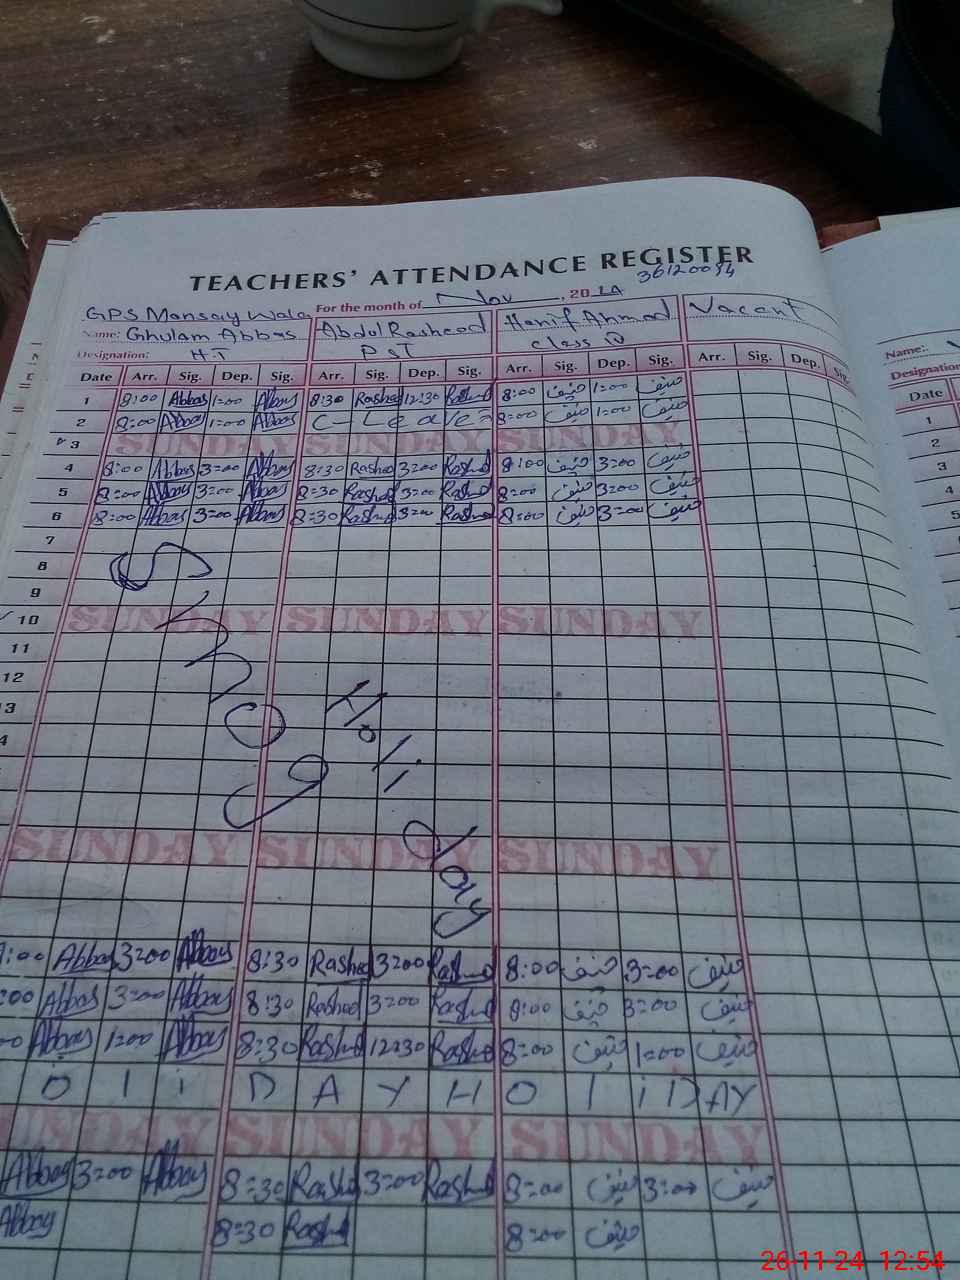 TEACHERS' ATTENDANCE REGISTER
36120094
GPS Mansay Wala For the month of Nov , 20 24
Name: Ghulam Abbas Abdul Rasheed Hanif Ahmad Vacant Name:
Designation: H.T PST Class IV Designation
Date Arr. Sig. Dep. Sig. Arr. Sig. Dep. Sig. Arr. Sig. Dep. Sig. Arr. Sig. Dep. Sig. Date
1 8:00 Abbas 1=00 Abbas 8:30 Rasheed 12:30 Rashed 8:00 حنیف 1:00 حنیف 1
2 8=00 Abbas 1=00 Abbas C- Leave 8=00 حنیف 1=00 حنیف 2
3 SUNDAY SUNDAY SUNDAY 3
4 8:00 Abbas 3=00 Abbas 8:30 Rasheed 3=00 Rashed 8:00 حنیف 3=00 حنیف 4
5 8=00 Abbas 3=00 Abbas 8=30 Rashed 3=00 Rashed 8=00 حنیف 3=00 حنیف 5
6 8=00 Abbas 3=00 Abbas 8=30 Rashed 3=00 Rashed 8=00 حنیف 3=00 حنیف
7
8
9
10 SUNDAY SUNDAY SUNDAY
11
12
13
4
Smog Holiday
SUNDAY SUNDAY SUNDAY
:00 Abbas 3=00 Abbas 8:30 Rashed 3=00 Rashed 8:00 حنیف 3=00 حنیف
:00 Abbas 3=00 Abbas 8:30 Rasheed 3=00 Rashed 8:00 حنیف 3=00 حنیف
00 Abbas 1=00 Abbas 8=30 Rashed 12=30 Rashed 8=00 حنیف 1=00 حنیف
O l i D A Y H O l i D AY
UNDAY SUNDAY SUNDAY
Abbas 3=00 Abbas 8=30 Rashed 3=00 Rashed 8=00 حنیف 3=00 حنیف
Abbas 8=30 Rashed 8=00 حنیف
26-11-24 12:54